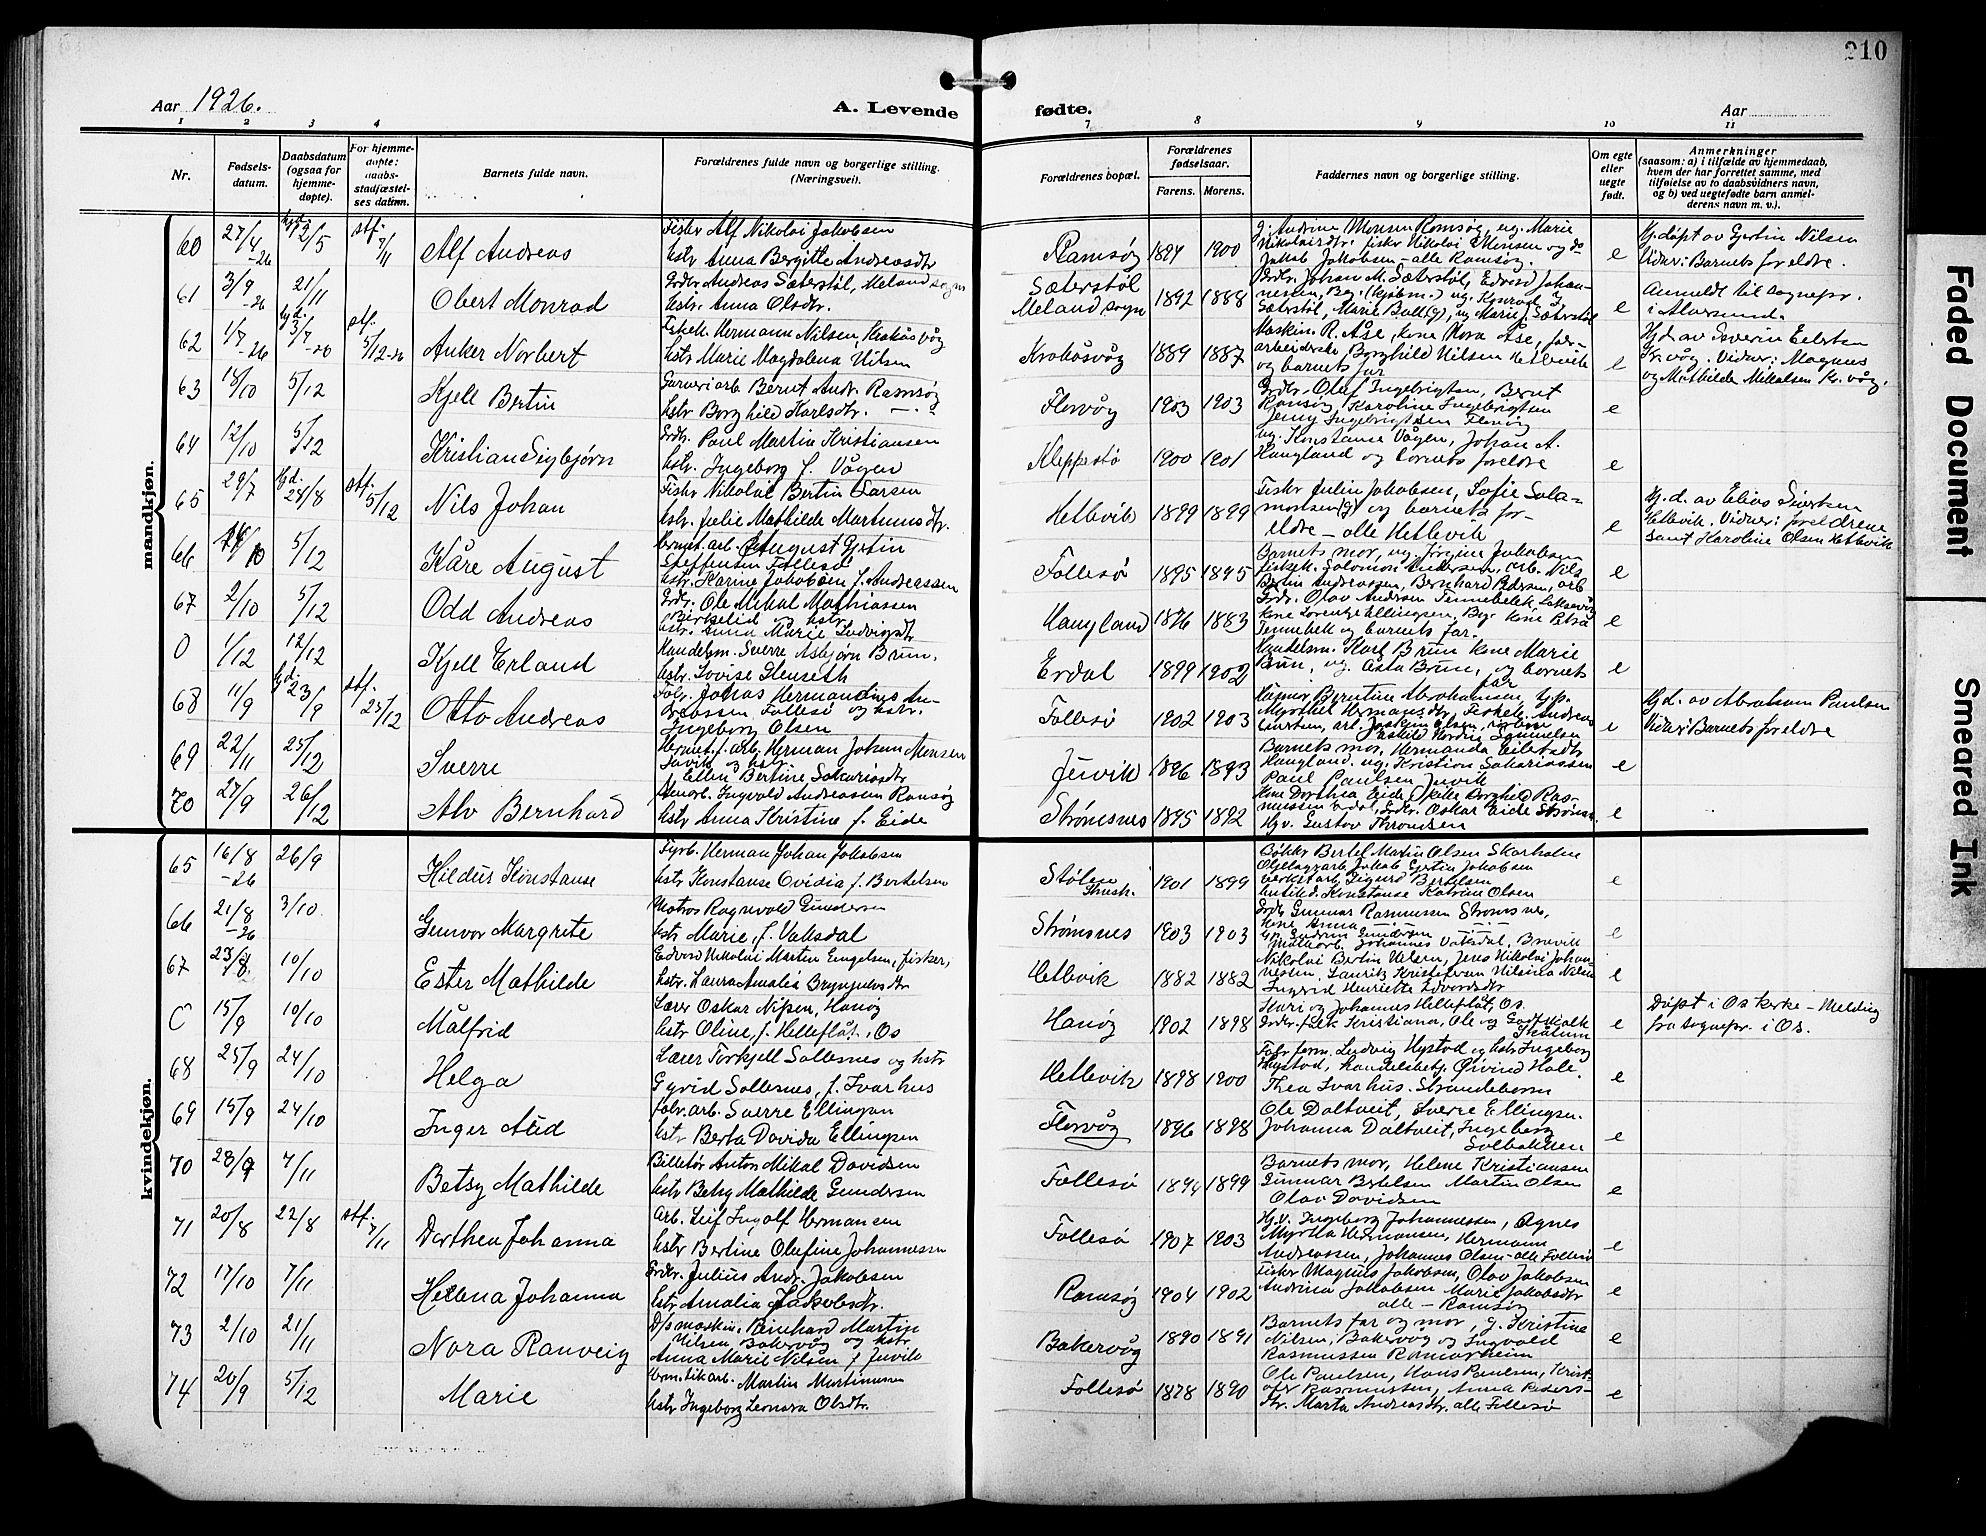 210
Aar 1926.
A. Levende fødte.
Aar
1 2 3 4 7 8 9 10 11
Nr.
Fødsels-
datum.
Daabsdatum
(ogsaa for
hjemme-
døpte).
For hjemme-
døpte:
daabs-
stadfæstel-
ses datum.
Barnets fulde navn.
Forældrenes fulde navn og borgerlige stilling.
(Næringsvei).
Forældrenes bopæl.
Forældrenes
fødselsaar.
Farens. Morens.
Faddernes navn og borgerlige stilling.
Om egte
eller
uegte
født.
Anmerkninger
(saasom: a) i tilfælde av hjemmedaab,
hvem der har forrettet samme, med
tilføielse av to daabsvidners navn,
og b) ved uegtefødte barn anmel-
derens navn m. v.).
mandkjøn.
60 27/4 -26 hjd. 12/5 stf. 7/11 Alf Andreas
Fisker Alf Nikolai Jakobsen
hstr Anna Bergitte Andreasdtr
Ramsøy 1894 1900
g. Andrine Monsen Ramsøy, ug. Marie
Nikolaisdtr. fisker Nikolai Monsen og do
Jakob Jakobsen - alle Ramsøy.
e
Hj.døpt av Gjertin Nilsen
Vidner: Barnets foreldre.
61 3/9 -26 21/11 Obert Monrad
Grdbr Andreas Sæterstøl, Meland sogn
hstr. Anna Olsdtr.
Sæterstøl
Meland sogn 1892 1888
e
Anmeldt til sognepr.
i Alversund.
62 1/7 -26 hjd. 3/7 -26 stf. 5/12-26 Anker Norbert
Fiskeh. Hermann Nilsen, Krokåsvåg
hstr Marie Magdalena Nilsen
Krokåsvåg 1889 1887
Maskin. R. Åse, kone Nora Åse, far-
arbeiderske, Borghild Nilsen Hetlevik
og barnets far
e
Hj.d av Severin Eilertsen
Kr.våg. Vidner: Magnus
og Mathilde Mikkalsen Kr. våg.
63 18/10 5/12 Kjell Bertin
Garveriarb. Bernt Andr. Ramsøy
hstr Borghild Karlsdtr.
Florvåg 1903 1903
Grdbr. Olaf Ingebrigtsen, Bernt
Ramsøy, Karoline Ingebrigtsen
Jenny Ingebrigtsen Florvåg
e
64 12/10 5/12 Kristian Sigbjørn
Grdbr. Paul Martin Kristiansen
hstr. Ingeborg f. Vågen
Kleppestø 1900 1901
ug. Konstanse Vågen, Johan A.
Haugland og barnets foreldre
e
65 29/7 hjd. 28/8 stf. 5/12 Nils Johan
Fiskr Nikolai Bertin Larsen
hstr. Julie Mathilde Martinusdtr.
Hetlevik 1899 1899
Fiskr Julin Jakobsen, Sofie Sala-
monsen(g) og barnets for-
eldre - alle Hetlevik
e
Hj. d. av Elias Sivertsen
Hetlevik. Vidner: foreldrene
samt Karoline Olsen Hetlevik
66 5/12 Kåre August
Hermet. arb. August Gjertin
Steffensen Follesø
hstr. Karine Jakobsen f. Andreassen
Follesø 1895 1895
Fiskeh. Solomon Andersen, arb. Nils
Bertin Andreassen, Bernhard Pedersen, arb
e
67 2/10 5/12 Odd Andreas
Grdbr. Ole Mikal Mathiassen
Birkelid og hstr
hstr. Anna Marie Ludvigsdtr
Haugland 1876 1883
Grdbr. Olav Andersen Tennebekk, Laksevåg
kone Lorentze Ellingsen, Bgn. kone Petra
Tennebek og barnets far.
e
0 1/12 12/12 Kjell Erland
Handelsm. Sverre Asbjørn Brun.
hstr. Lovise Stenseth
Erdal 1899 1902
Handelsm. Karl Brun kone Marie
Brun, ug. Asta Brun, og barnets
far
e
68 11/9 hjd. 23/9 stf. 25/12 Otto Andreas
Fabr. Johas Hermandinus An-
dreassen Follesø og hstr.
Ingeborg Olsen
Follesø 1902 1903
e
Hj.d. av Abraham Paulsen
Vidner: Barnets foreldre
69 22/11 25/12 Sverre
Hermet.f. arb. Herman Johan Monsen
Juvik og hstr.
Ellen Bertine Sakariasdtr
Juvik 1896 1893
Barnets mor, Hermanda Eilertsdtr
Haugland. ug. Kristian Sakariassen
Paul Paulsen Juvik
e
70 27/9 26/12 Alv Bernhard
Ingvald Andreassen Ramsøy
hstr Anna Kristine f. Eide
Strømsnes 1895 1892
Kone Dorthea Eide, Pike Borghild Ras-
mussen Erdal, Grdbr. Oskar Eide Strømsn.
Hgv. Gustav Throndsen
e
kvindekjøn.
65 16/8 -26 26/9 Hildur Konstanse
Fyrb. Herman Johan Jakobsen
hstr Konstanse Ovidia f. Bertelsen
Stølen
Strush. 1901 1899
Bøkker Bertel Martin Olsen Skarholm
Oljelagerarb Jakob Gjertin Jakobsen
Verkstarb. Sigurd Bertelsen
Butikd. Konstanse Katrine Olsen
e
66 21/8 -26 3/10 Gunvor Margrete
Matros Ragnvald Gundersen
hstr Marie, f. Vaksdal
Strømsnes 1903 1903
Grdb Gunnar Rasmussen Strømsnes,
kone Anna
Møllearb. Johannes Vaksdal, Brevik
e
67 23/8 10/10 Ester Mathilde
Edvard Nikolai Martin Engelsen, fisker,
hstr. Laura Amalia Brynjulvsdtr
Hetlevik 1882 1882
Nikolai Bertin Nilsen, Jens Nikolai Johan-
nessen, Lauritz Kristofersen Nilsina Nilsen
Ingrid Henriette Edvardsdtr
e
C 15/9 10/10 Målfrid
Lærer Oskar Nipen, Hanøy
hstr Oline, f. Helleflåt, i Os
Hanøy 1902 1898
Kari og Johannes Helleflåt, Os.
e
Døpt i Os kirke - Melding
fra sognepr. i Os.
68 25/9 24/10 Helga
Lærer Torkjell Sollesnes og hstr
Gyrid Sollesnes, f. Ivarhus
Hetlevik 1898 1900
Fabr.form. Ludvig Nystad og hstr Ingeborg
Nystad, handelsbetj. Øivind Hole.
Thea Ivarhus. Strandebarm
e
69 15/9 24/10 Inger Aud
Fabr. arb. Sverre Ellingsen
hstr Berta Davida Ellingsen
Florvåg 1896 1898
Ole Daltveit, Sverre Ellingsen.
Johanna Daltveit, Ingeborg
Solbakken
e
70 28/9 7/11 Betsy Mathilde
Billetør Anton Mikal Davidsen
hstr Betsy Mathilde Gundersen
Follesø 1894 1899
Barnets mor, Helene Kristiansen
Gunnar Bertelsen Martin Olsen
Olav Davidsen
e
71 20/8 22/8 stf. 7/11 Dorthea Johanna
Arb. Leif Ingolf Hermansen
hstr Bertine Olufine Johannessen
Follesø 1907 1903
Hgv. Ingeborg Johannessen, Agnes
Myrtha Hermansen, Hermann
Andreassen, Johannes Olsen - alle Follesø
e
72 17/10 7/11 Helena Johanna
Grdbr. Julius Andr. Jakobsen
hstr Amalia Jakobsdtr.
Ramsøy 1904 1902
Fisker Magnus Jakobsen, Olav Jakobsen
Andrina Jakobsen Marie Jakobsdtr
alle - Ramsøy
e
73 2/10 21/11 Nora Ranveig
D/s maskin. Reinhard Martin
Nilsen Bakervåg og hstr
Anna Marie Nilsen f. Juvik
Bakervåg 1890 1891
Barnets far og mor, g. Kristine
Nilsen, Bakervåg og Ingvald
Rasmussen Ramsøyheim
e
74 20/9 5/12 Marie
Martin Martinussen
hstr Ingeborg Leonora Olsdtr.
Follesø 1878 1890
Ole Paulsen, Hans Paulsen, Krist-
ofer Rasmussen, Anna Peders-
dtr. Marta Andreasdtr. alle Follesø
e
Faded Document
Smeared Ink